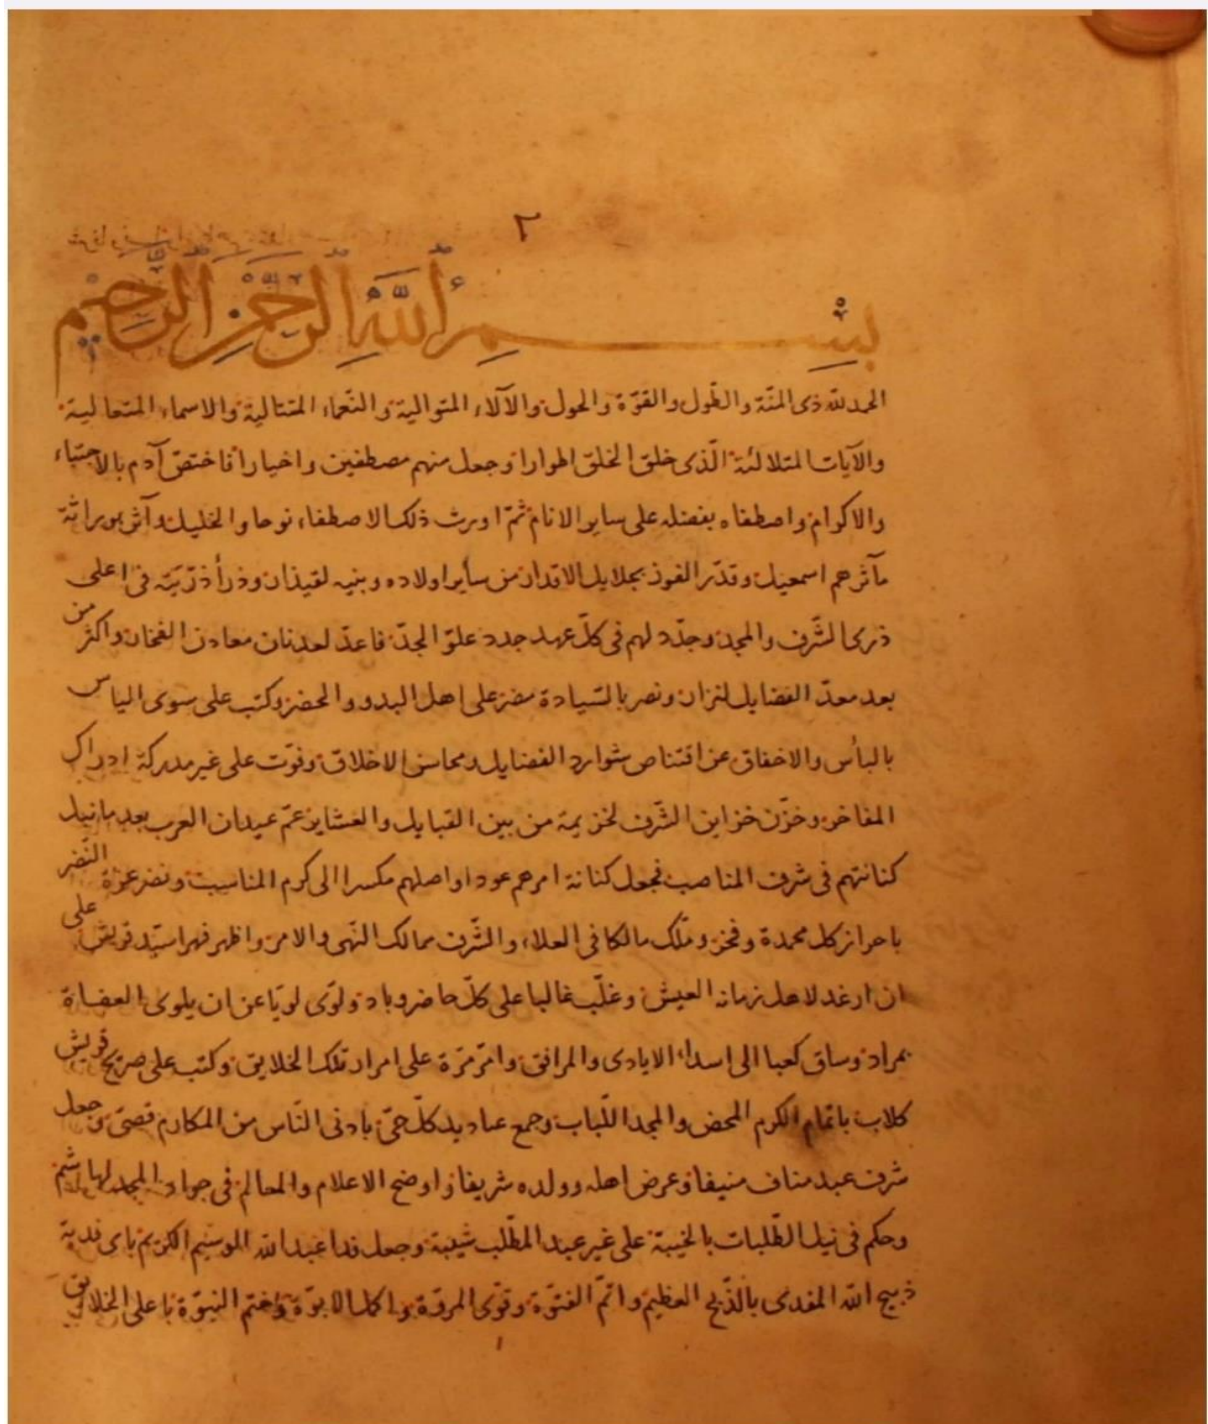 ٢
بسم الله الرحمن الرحيم
الحمد لله ذى المنّة والطّول والقوّة والحول والآلاء المتوالية والنّعماء المتتالية والاسماء المتعالية
والآيات المتلالئة الّذى خلق الخلق اطوارا وجعل منهم مصطفين واخيارا فاختصّ آدم بالاجتباء
والاكرام واصطفاه بفضله على ساير الانام ثمّ اورث ذلك الاصطفاء نوحا والخليل وآثر بوراثة
مآثرهم اسمعيل وقدّر الفوز بجلايل الاقدار من سأير اولاده وبنيه لقيذار وذرأ ذرّيّته فى اعلى
ذرى الشّرف والمجد وجدّد لهم فى كلّ عهد جدد علوّ الجدّ فاعدّ لعدنان معادن الفخار واكثر من
بعد معدّ الفضايل لنزار ونصر بالسّيادة مضر على اهل البدو والحضر وكتب على سوى الياس
بالبأس والاخفاق عن اقتناص شوارد الفضايل ومحاسن الاخلاق وفوّت على غير مدركة ادراك
المفاخر وخزّن خزاين الشّرف لخزيمة من بين القبايل والعشاير عمّ عيدان العرب بعد ما نيل
كنانتهم فى شرف المناصب فجعل كنانة امرهم عودا واصلهم مكسرا الى كرم المناسب ونضر عزة النّضر
باحراز كل محمدة وفخر وملّك مالكا فى العلاء والشّرف ممالك النّهى والامر واظهر فهرا سيّد قريش على
ان ارغد لاهل زمانه العيش وغلّب غالبا على كلّ حاضر وباد ولوّى لويّا عن ان يلوى العفاة
بمراد وساق كعبا الى اسداء الايادى والمرافق وامرّ مرّة على امرار تلك الخلايق وكتب على صريح قريش
كلاب باتمام الكرم المحض والمجد اللّباب وجمع عباديد كلّ حىّ بادنى النّاس من المكارم قصىّ وجعل
شرف عبد مناف منيفا وعرض اهله وولده شريفا واوضح الاعلام والمعالم فى جواد المجد لهاشم
وحكم فى نيل الطّلبات بالخيبة على غير عبد المطّلب شيبة وجعل فدا عبد الله الوسيم الكريم باى فدية
ذبيح الله المفدى بالذّبح العظيم واتمّ الفتوّة وقوّى المروّة واكمل الابوّة وختم النبوّة باعلى الخلايق